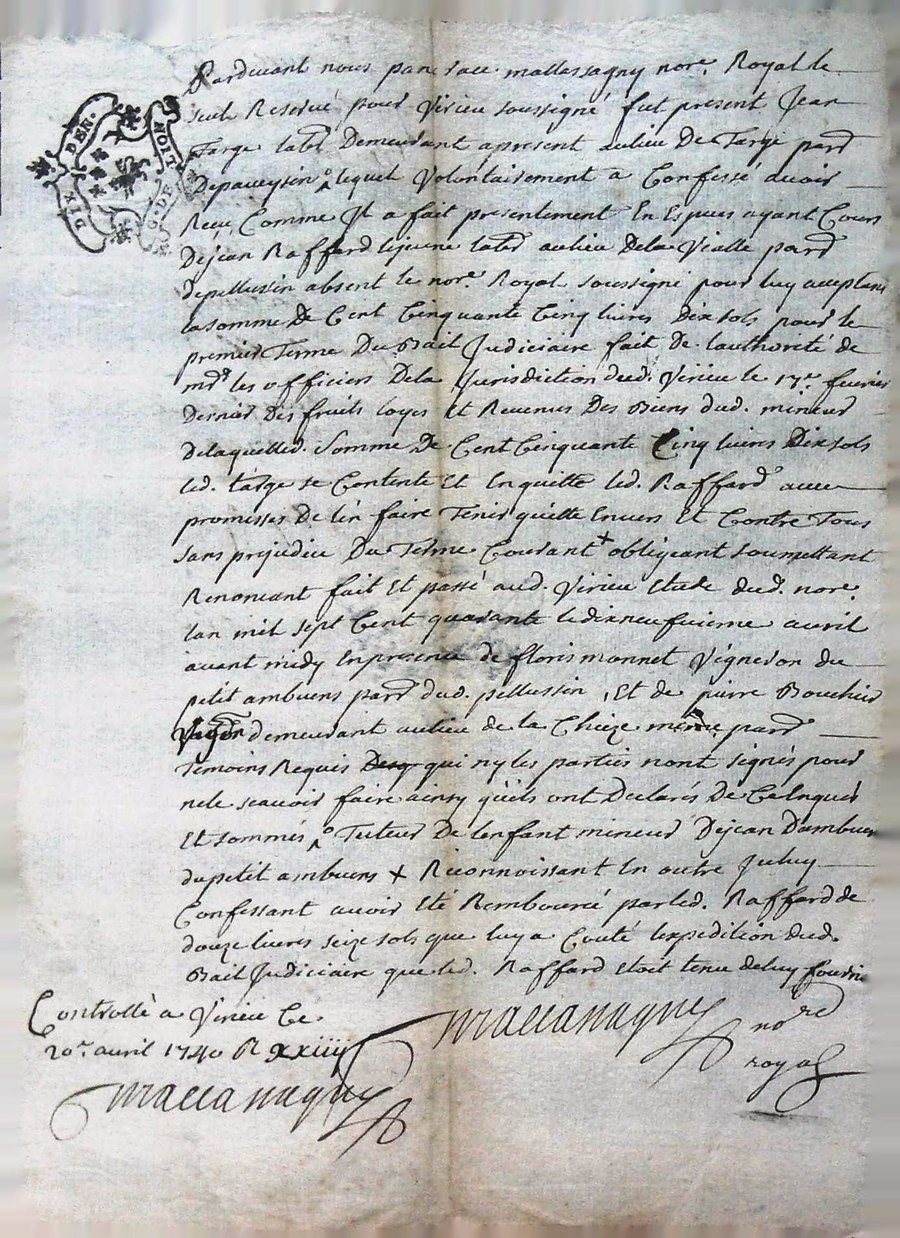 Pardevant nous pancrace mallassagny nore. Royal le
seul Reservé pour Virieu soussigné fut present Jean
Targe labr Demeurant apresent aulieu De Targe parr
Depaveysin ° lequel Volontairement a Confessé avoir
Receu Comme Jl a fait presentement En Especes ayant Cours
Dejean Raffard lejeune labr aulieu Dela Vialle parr
depellussin absent le nore. Royal soussigné pour luy acceptant
la somme De Cent Cinquante Cinq livres Dix sols pour le
premier Terme Du Bail Judiciaire fait De lauthorité de
mrs les officiers Dela Jurisdiction dud. Virieu le 17e. fevrier
Dernier Des fruits loyes Et Revenus Des Biens dud. mineur
Delaquelled. Somme De Cent Cinquante Cinq livres Dix sols
led. targe se Contente Et Enquitte led. Raffard avec
promesses De len faire Tenir quitte Envers Et Contre Tous
sans prejudice Du Terme Courant + obligeant soumettant
Renoncant fait Et passé aud. Virieu Etude dud. nore.
lan mil sept Cent quarante le dixneufvieme avril
avant midy En presence de floris monnet Vigneron du
petit ambuens parr dud. pellussin, Et de pierre Bouchier
Vigron demeurant aulieu de la Chieze même parr
Temoins Requis qui ny les parties nont signés pour
nele scavoir faire ainsy quils ont Declarés De Ce Enquis
Et sommés ° Tuteur De lenfant mineur Dejean Dambuens
du petit ambuens + Reconnoissant En outre Jceluy
Confessant avoir Eté Rembourcé par led. Raffard de
douze livres seize sols que luy a Couté lexpedition dud.
Bail Judiciaire que led. Raffard Etoit tenu deluy fournir
mallassagny nore
royal
Controllé a Virieu Ce
20e. avril 1740 R xxiiij s
mallassagny
DIX DEN.
G. DE LION